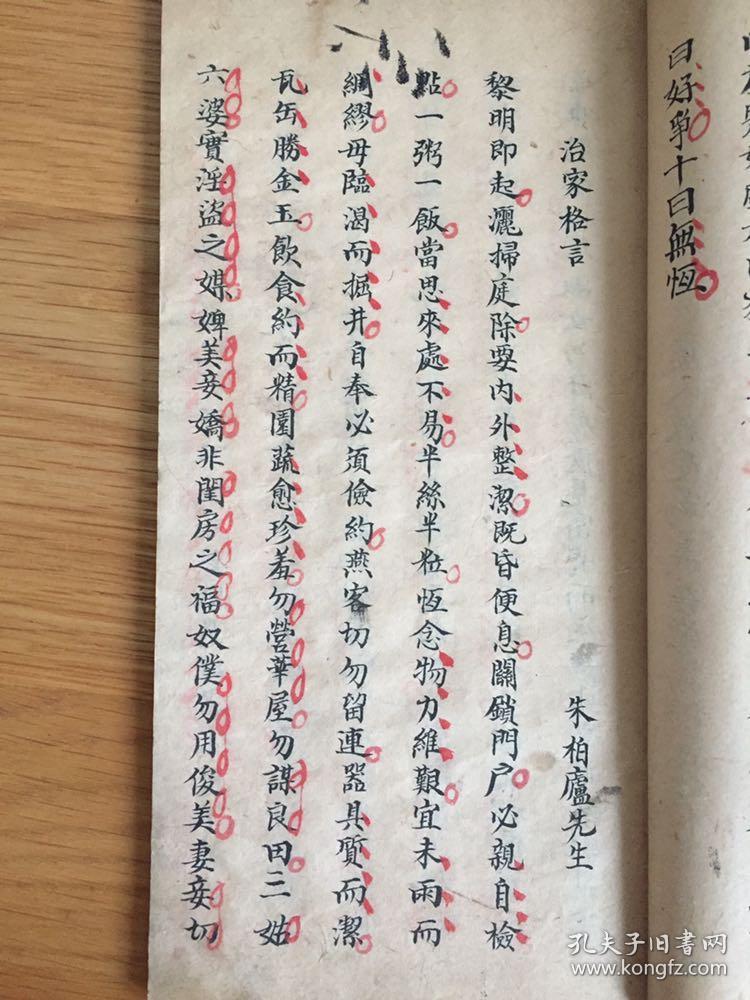 曰好爭十曰無恆
治家格言 朱柏廬先生
黎明即起灑掃庭除要內外整潔既昏便息關鎖門戶必親自檢
點一粥一飯當思來處不易半絲半粒恆念物力維艱宜未雨而
綢繆毋臨渴而掘井自奉必須儉約燕客切勿留連器具質而潔
瓦缶勝金玉飲食約而精園蔬愈珍羞勿營華屋勿謀良田三姑
六婆實淫盜之媒婢美妾嬌非閨房之福奴僕勿用俊美妻妾切
孔夫子旧书网
www.kongfz.com